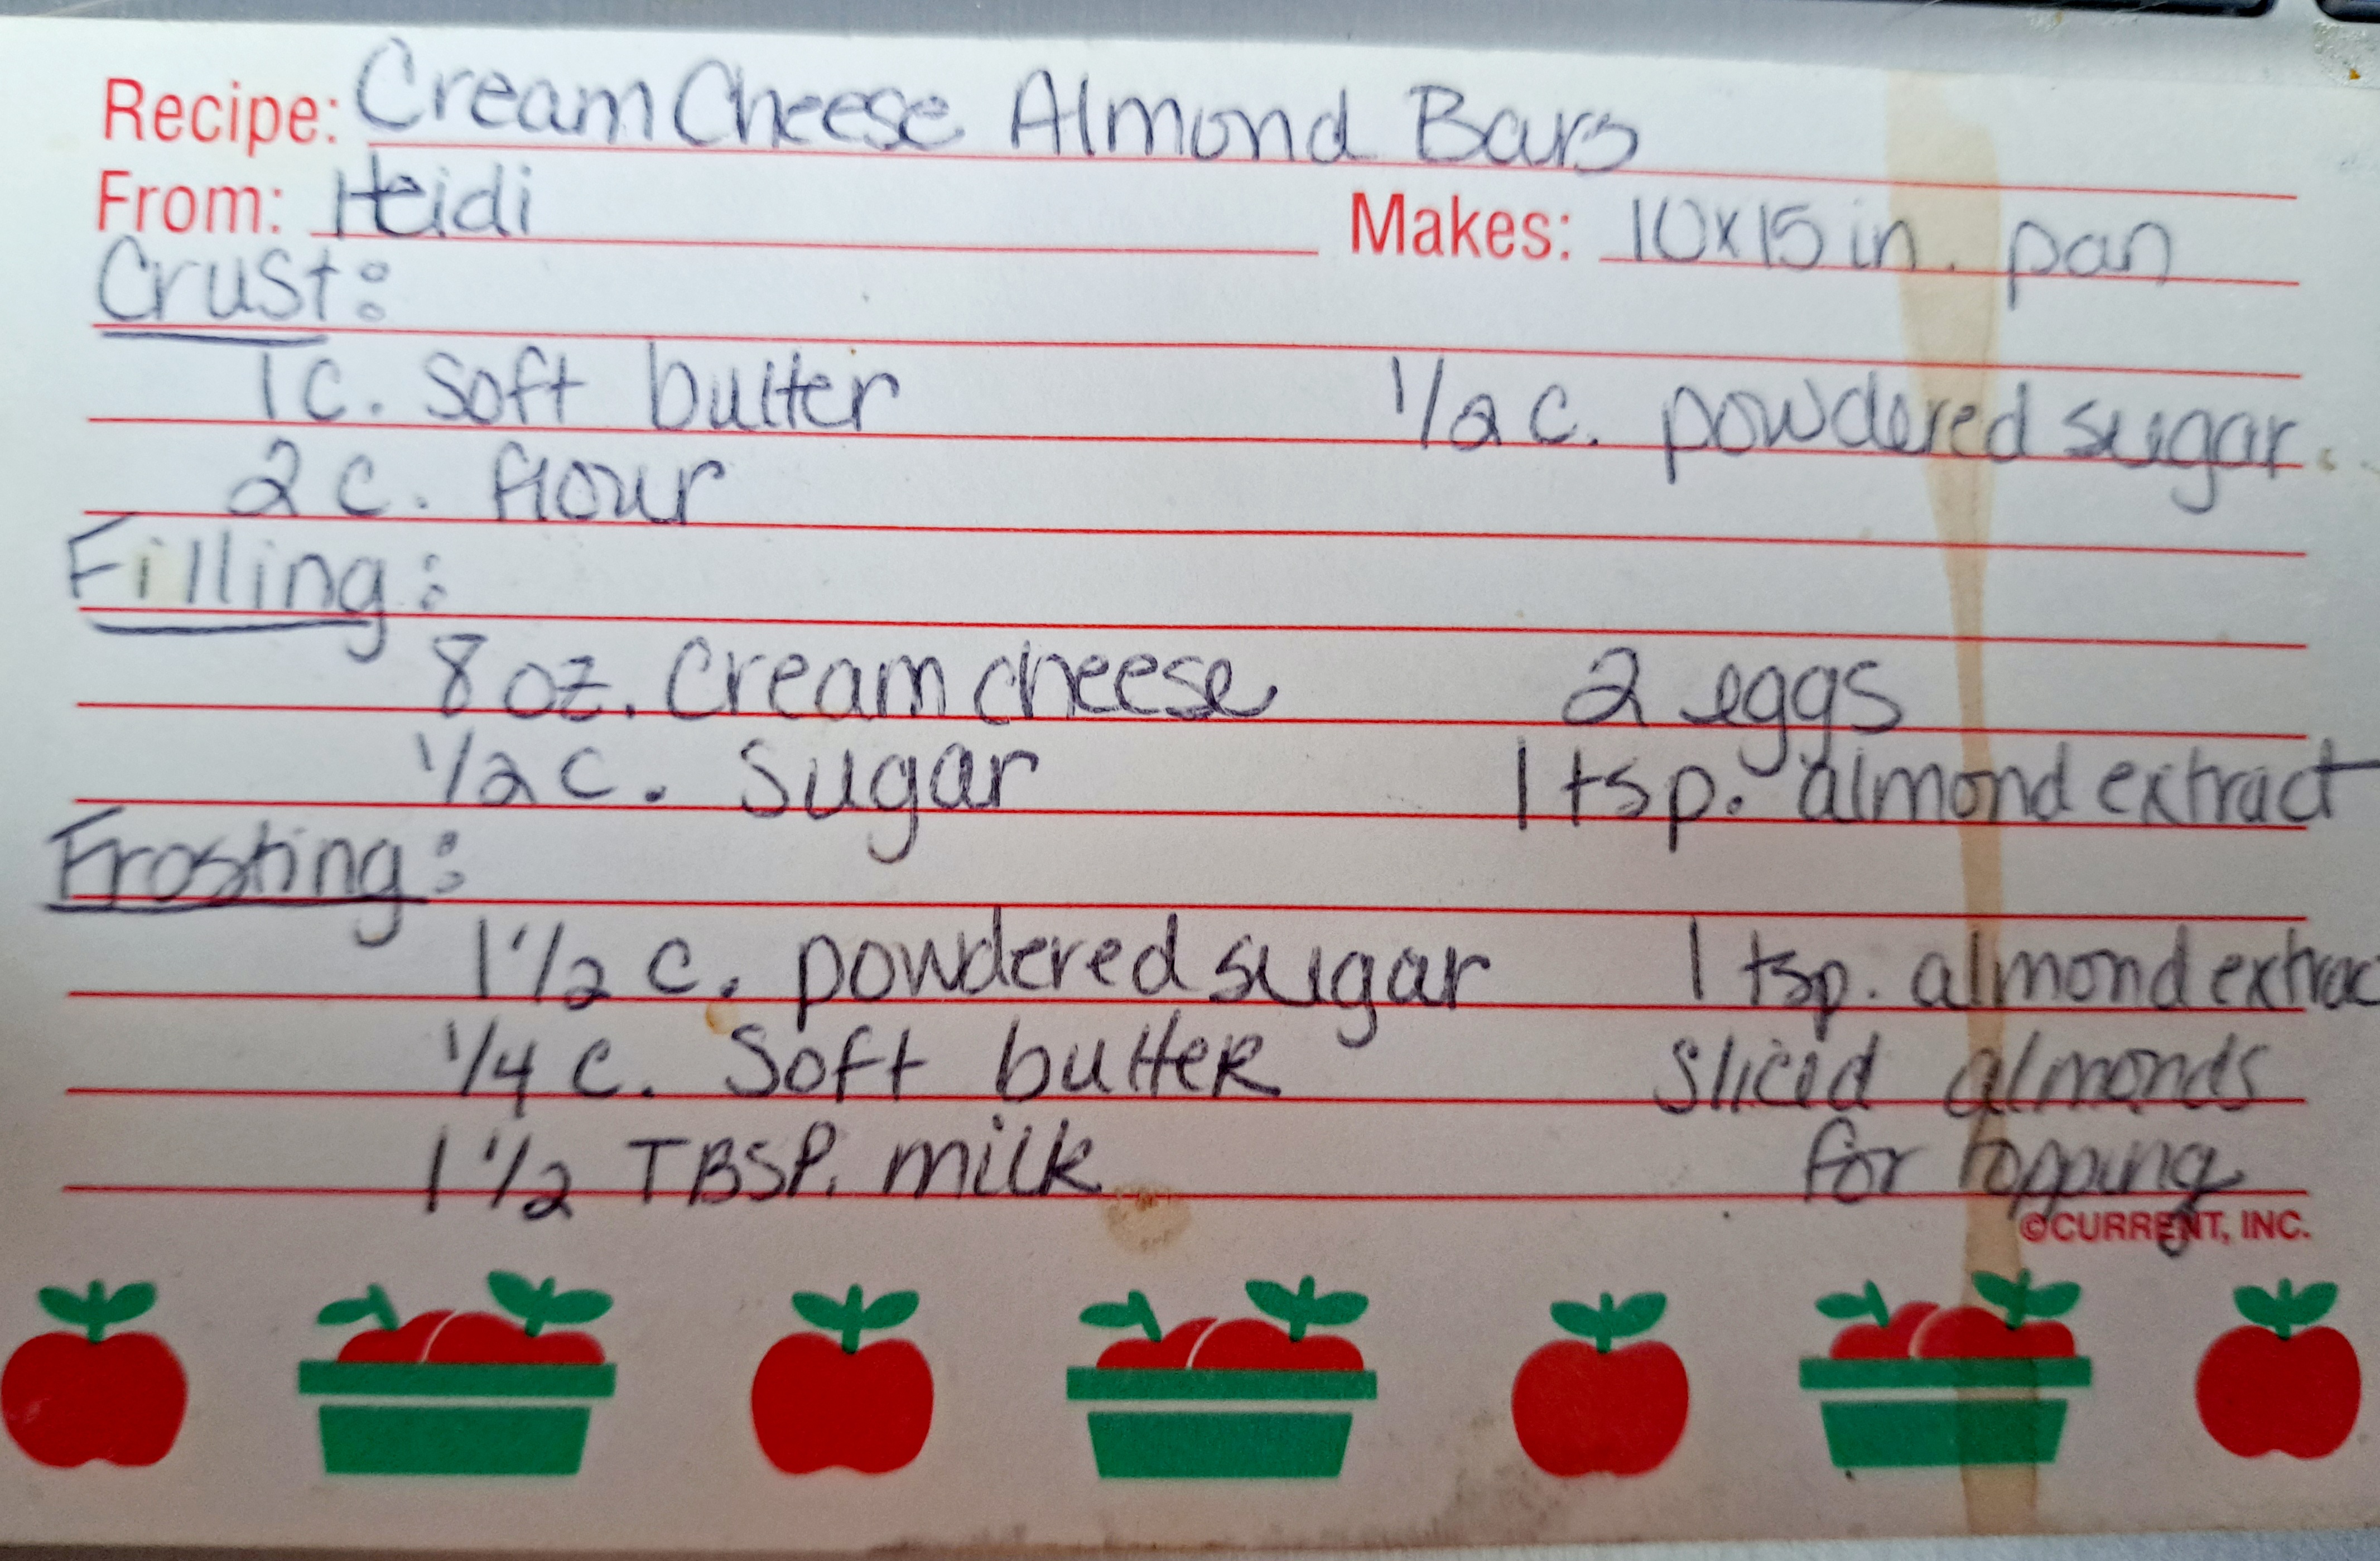 Recipe: Cream Cheese Almond Bars
From: Heidi Makes: 10x15 in. pan
Crust:
1 c. soft butter 1/2 c. powdered sugar
2 c. flour
Filling:
8 oz. cream cheese 2 eggs
1/2 c. sugar 1 tsp. almond extract
Frosting:
1 1/2 c. powdered sugar 1 tsp. almond extrac
1/4 c. soft butter sliced almonds
1 1/2 TBSP. milk for topping
©CURRENT, INC.